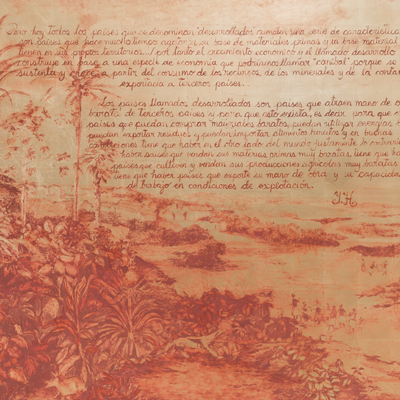 Pero hoy todos los países que se denominan desarrollados cumplen una serie de características
son países que hace mucho tiempo agotaron su base de materiales primas y la base material
tienen en sus propios territorios. Por tanto el crecimiento económico o el llamado desarrollo
construye en base a una especie de economía que podríamos llamar "caníbal" porque se
sustenta y crece a partir del consumo de los recursos, de los minerales y de la
exportación a terceros países.
Los países llamados desarrollados son países que atraen mano de o
barata de terceros países y para que esto exista, es decir para que e
países que puedan comprar materiales baratos, puedan utilizar energías
puedan exportar residuos y puedan importar alimentos baratos y en buenas
condiciones tiene que haber en el otro lado del mundo justamente lo contrario
haber países que vendan sus materias primas muy baratas, tiene que ha
países que cultiven y vendan sus producciones agrícolas muy baratas
tiene que haber países que exporte su mano de obra y su capacidad
de trabajo en condiciones de explotación.
Y.H